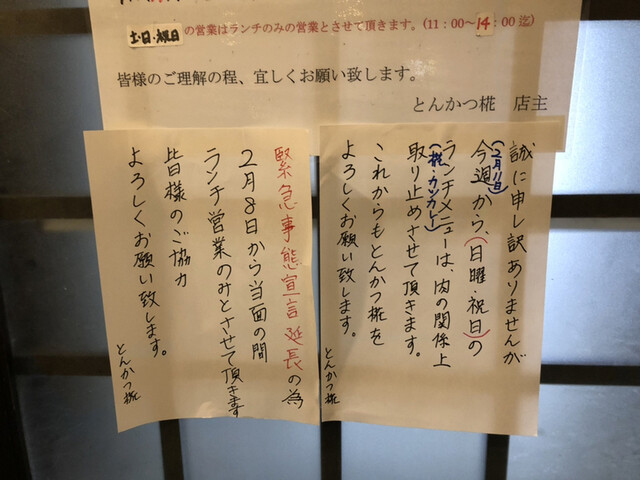 土・日・祝日の営業はランチのみの営業とさせて頂きます。(11:00～14:00迄)
皆様のご理解の程、宜しくお願い致します。
とんかつ椛　店主
誠に申し訳ありませんが
今週から、(日曜・祝日)の
(2月11日)
ランチメニューは、肉の関係上
(椛・カツカレー)
取り止めさせて頂きます。
これからもとんかつ椛を
よろしくお願い致します。
とんかつ椛
緊急事態宣言延長の為
2月8日から当面の間
ランチ営業のみとさせて頂きます
皆様のご協力
よろしくお願い致します。
とんかつ椛